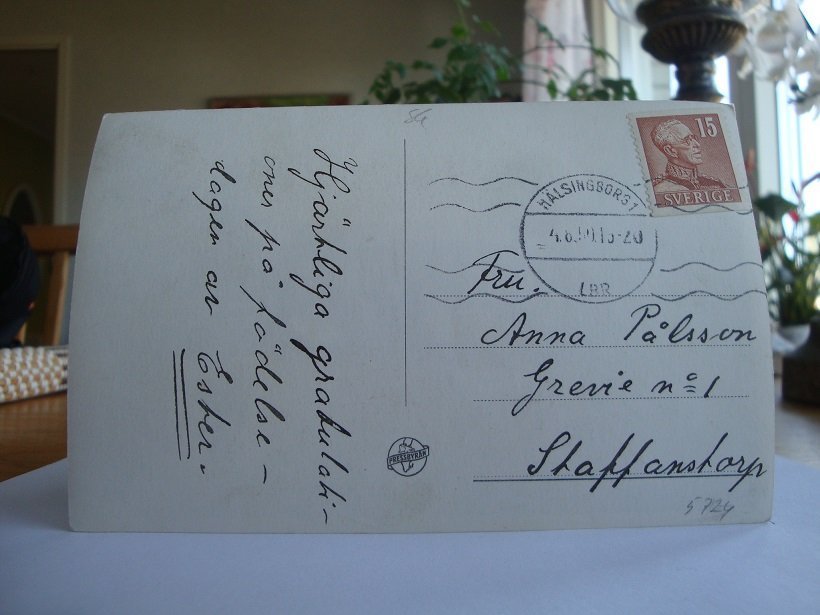 Hjärtliga gratulati-
oner på födelse-
dagen av Ester.
84
15
SVERIGE
HÄLSINGBORG 1
LBR
Fru.
Anna Pålsson
Grevie nº 1
Staffanstorp
PRESSBYRÅN
5724